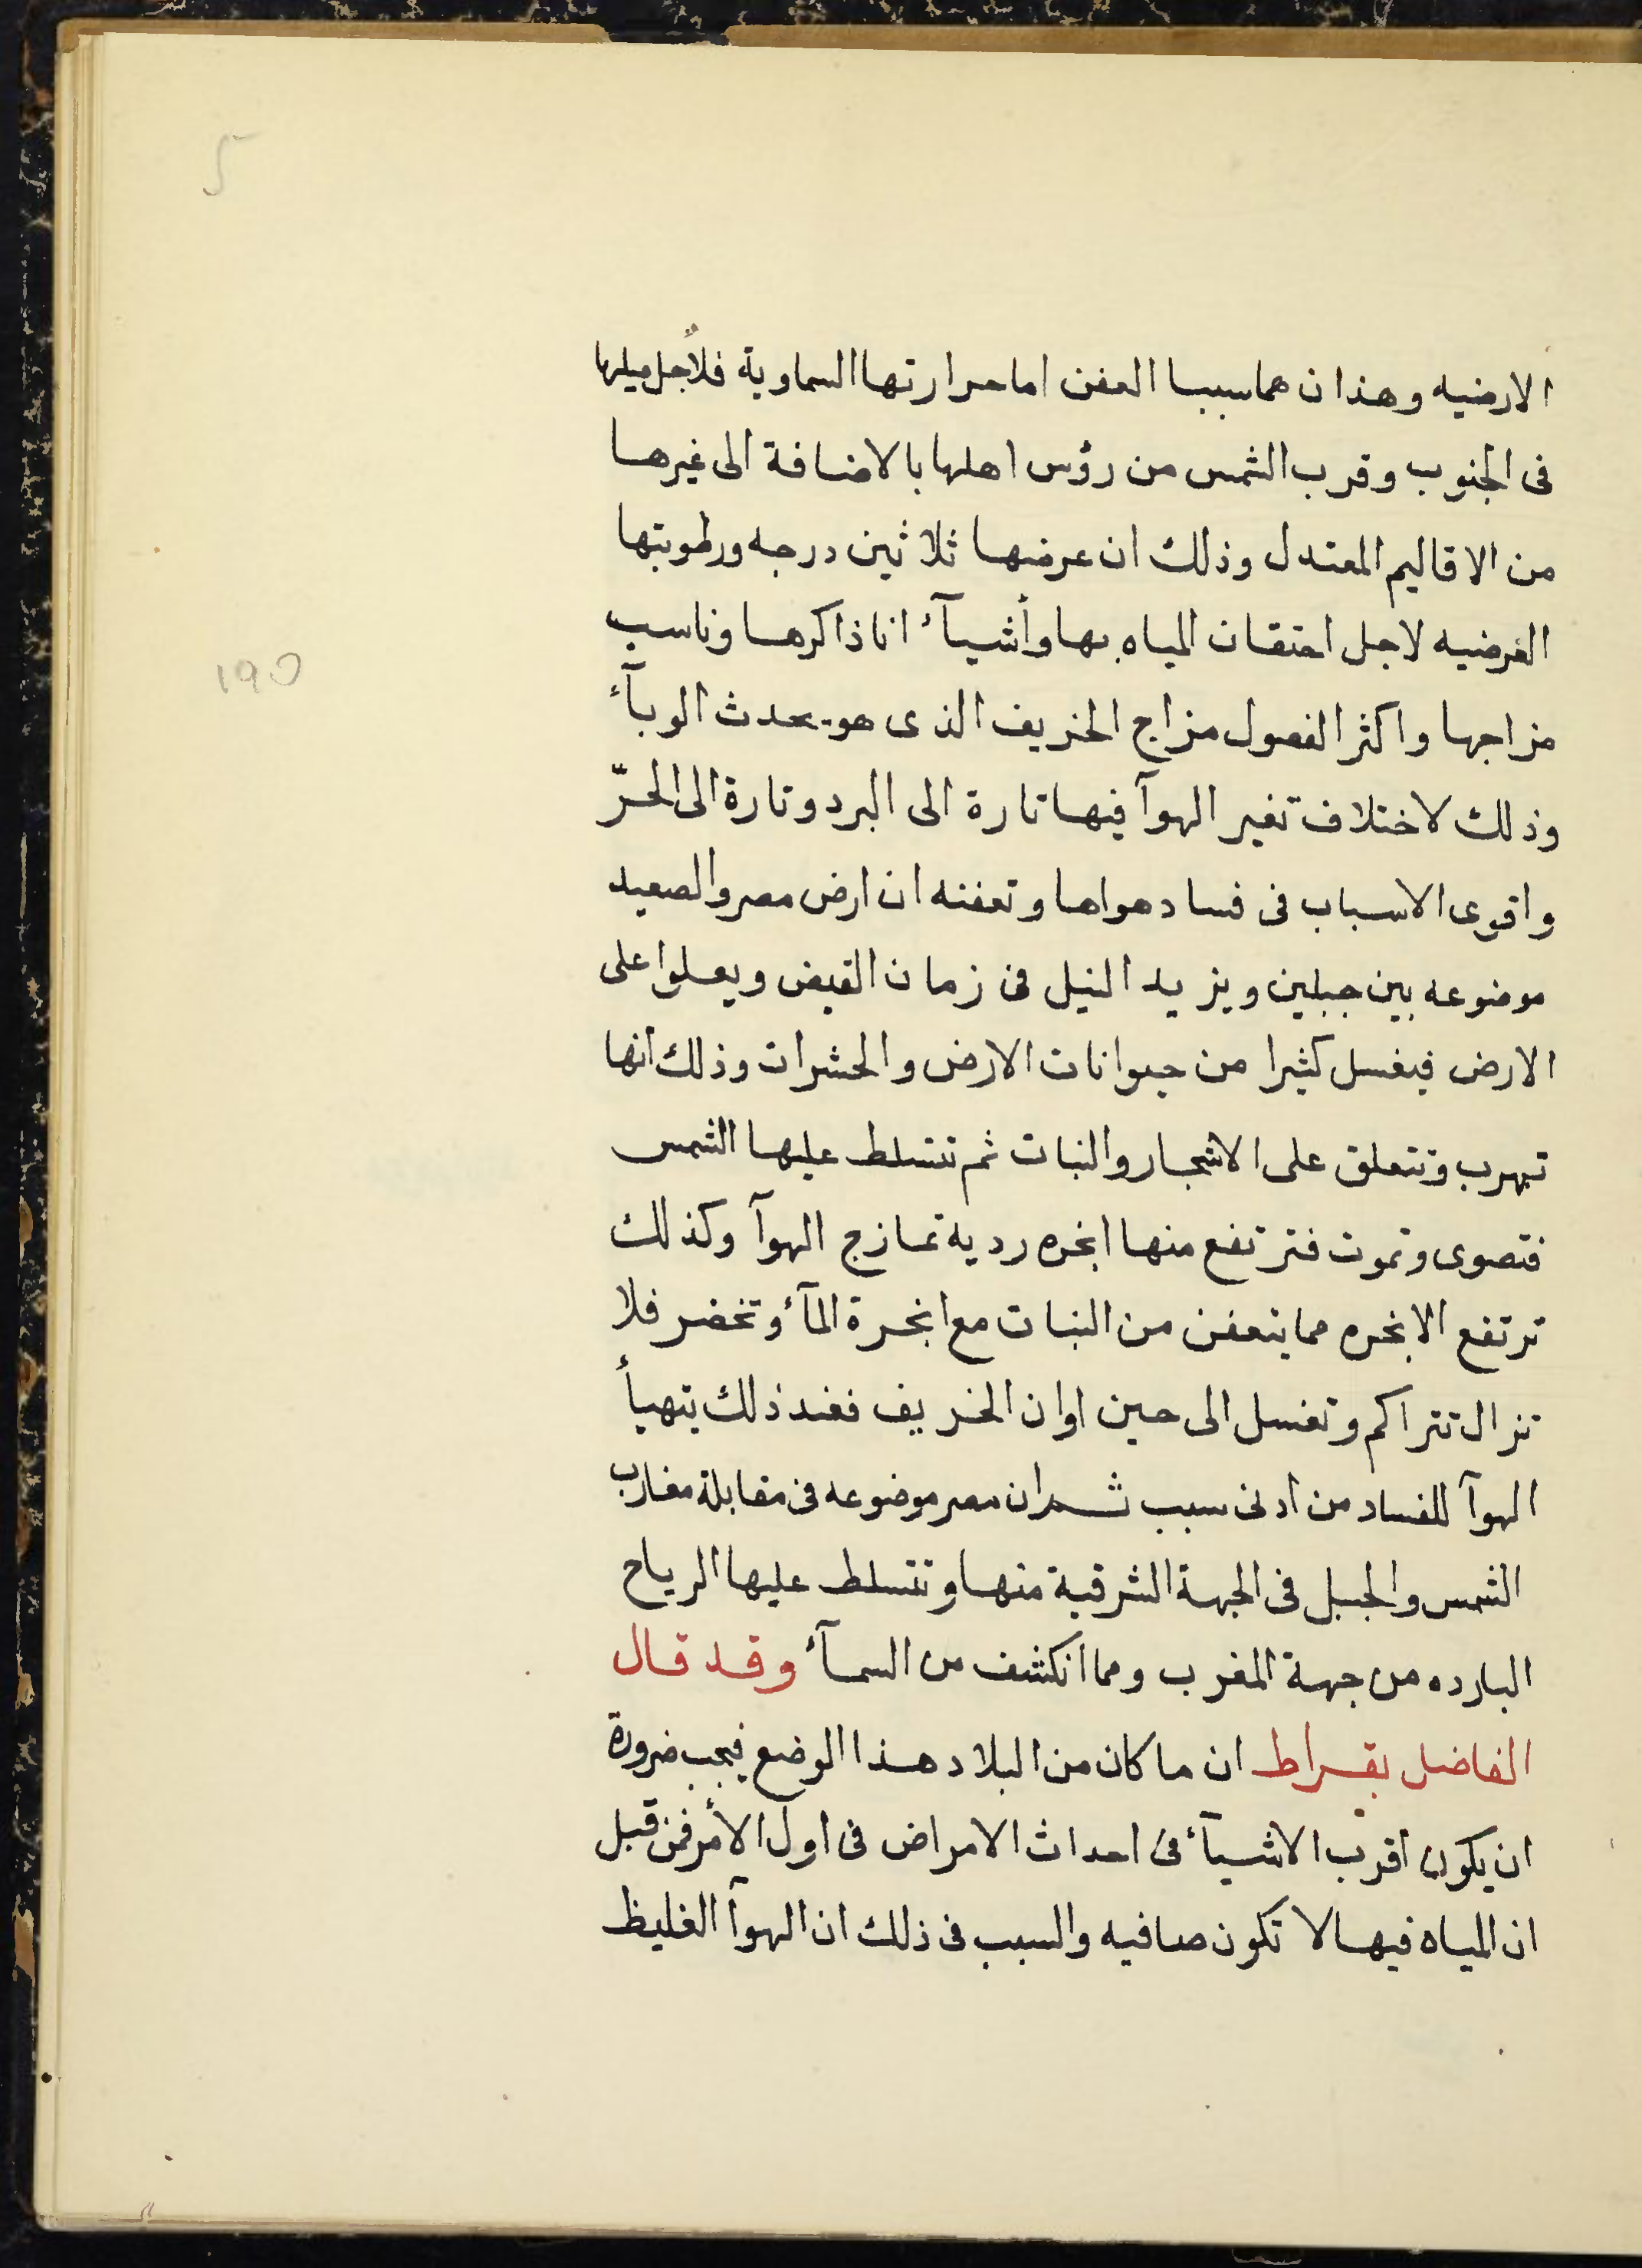 الارضيه وهذان هما سببا العفن اما حرارتها السماوية فلأجل ميلها
فى الجنوب وقرب الشمس من رؤس اهلها بالاضافة الى غيرها
من الاقاليم المعتدل وذلك ان عرضها ثلاثين درجه ورطوبتها
العرضيه لاجل احتقان المياه بها وأشيآء انا ذاكرها وناسب
مزاجها واكثر الفصول مزاج الخريف الذى هو يحدث الوبآء
وذلك لاختلاف تغير الهوآ فيها تارة الى البرد وتارة الى الحرّ
واقوى الاسباب فى فساد هواها وتعفنه ان ارض مصر والصعيد
موضوعه بين جبلين ويزيد النيل فى زمان القيض ويعلوا على
الارض فيغسل كثيرا من حيوانات الارض والحشرات وذلك انها
تهرب وتتعلق على الاشجار والنبات ثم تتسلط عليها الشمس
فتصوى وتموت فترتفع منها ابخره رديه تمازج الهوآ وكذلك
ترتفع الابخره مما يتعفن من النبات مع ابخرة المآء وتخضر فلا
تزال تتراكم وتغسل الى حين اوان الخريف فعند ذلك يتهيأ
الهوآ للفساد من ادنى سبب ثم ان مصر موضوعه فى مقابلة مغارب
الشمس والجبل فى الجهة الشرقية منها وتتسلط عليها الرياح
البارده من جهة المغرب ومما انكشف من السمآء وقد قال
الفاضل بقراط ان ما كان من البلاد هذا الوضع فيجب ضرورة
ان يكون اقرب الاشيآء فى احداث الامراض فى اول الأمر فمن قبل
ان المياه فيها لا تكون صافيه والسبب فى ذلك ان الهوآ الغليظ